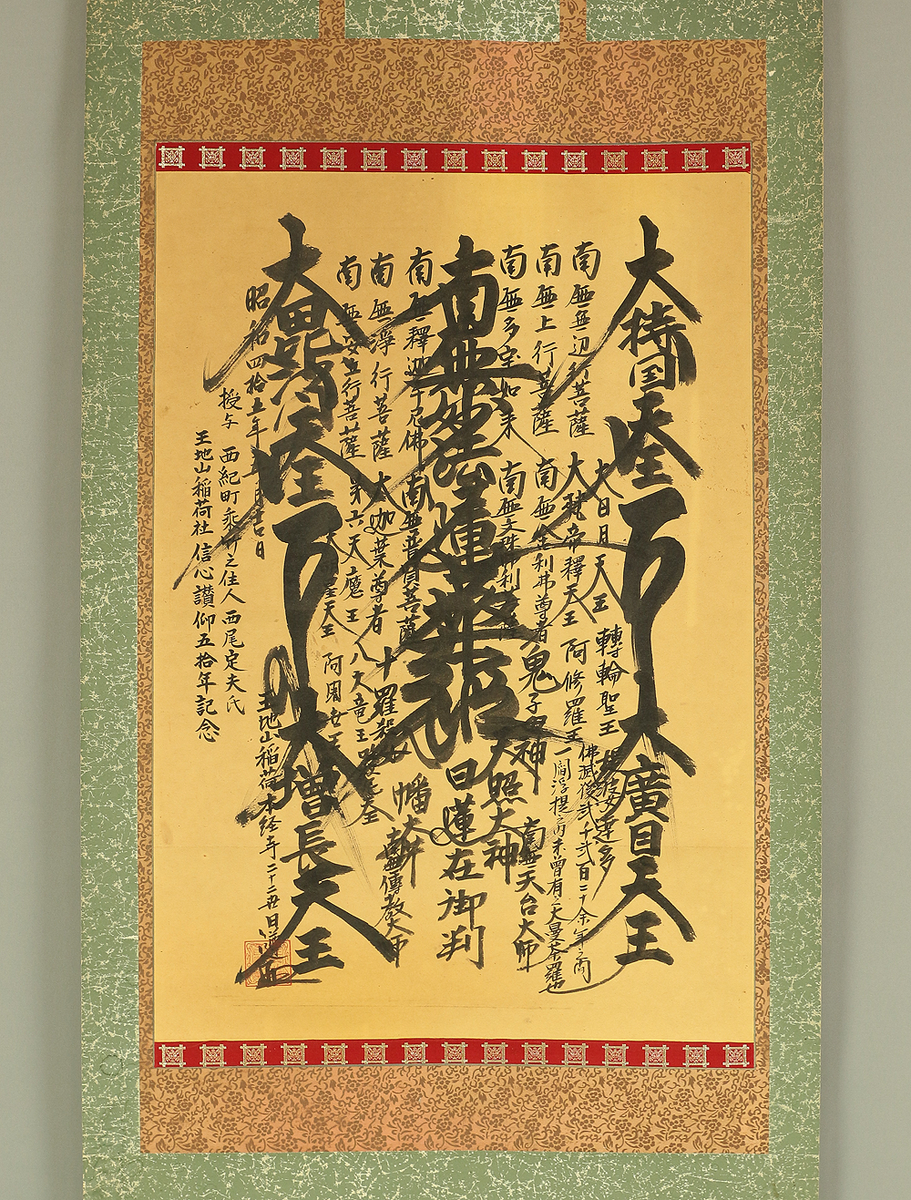 大持国天王
大廣目天王
大日月天王
轉輪聖王
南無無辺行菩薩
大梵帝釋天王
阿修羅王
佛滅後弐千弐百二十余年之間
一閻浮提之内未曾有之大曼荼羅也
南無上行菩薩
南無舎利弗尊者
鬼子母神
南無天台大師
南無多宝如来
南無文殊師利菩薩
天照大神
南無妙法蓮華経
日蓮在御判
南無釋迦牟尼佛
南無普賢菩薩
八幡大菩薩
南無傳教大師
南無淨行菩薩
大迦葉尊者
十羅刹女
南無安立行菩薩
第六天魔王
八大竜王
阿闍世王
大毘沙門天王
大増長天王
昭和四拾五年
授与 西紀町 之住人 西尾定夫氏
王地山稲荷社信心讃仰五拾年記念
王地山稲荷本経寺二十二世日